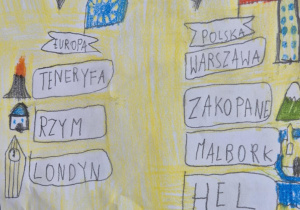 EUROPA
TENERYFA
RZYM
LONDYN
POLSKA
WARSZAWA
ZAKOPANE
MALBORK
HEL